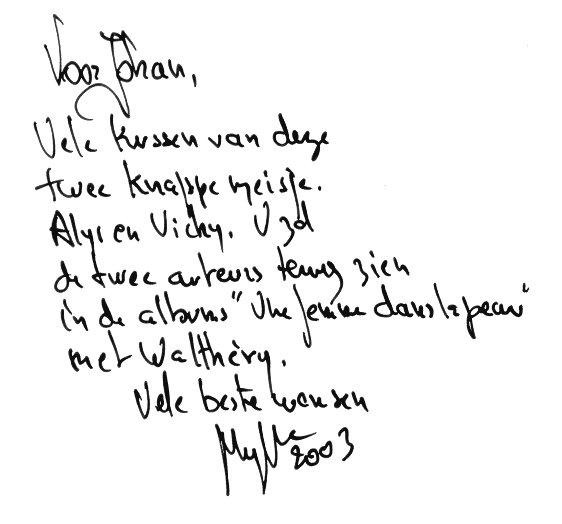 Voor Johan,
Vele Kussen van deze
twee knappe meisje.
Alys en Vichy. U zal
de twee auteurs terug zien
in de albums "Une femme dans la peau"
met Walthéry.
Vele beste wensen
2003